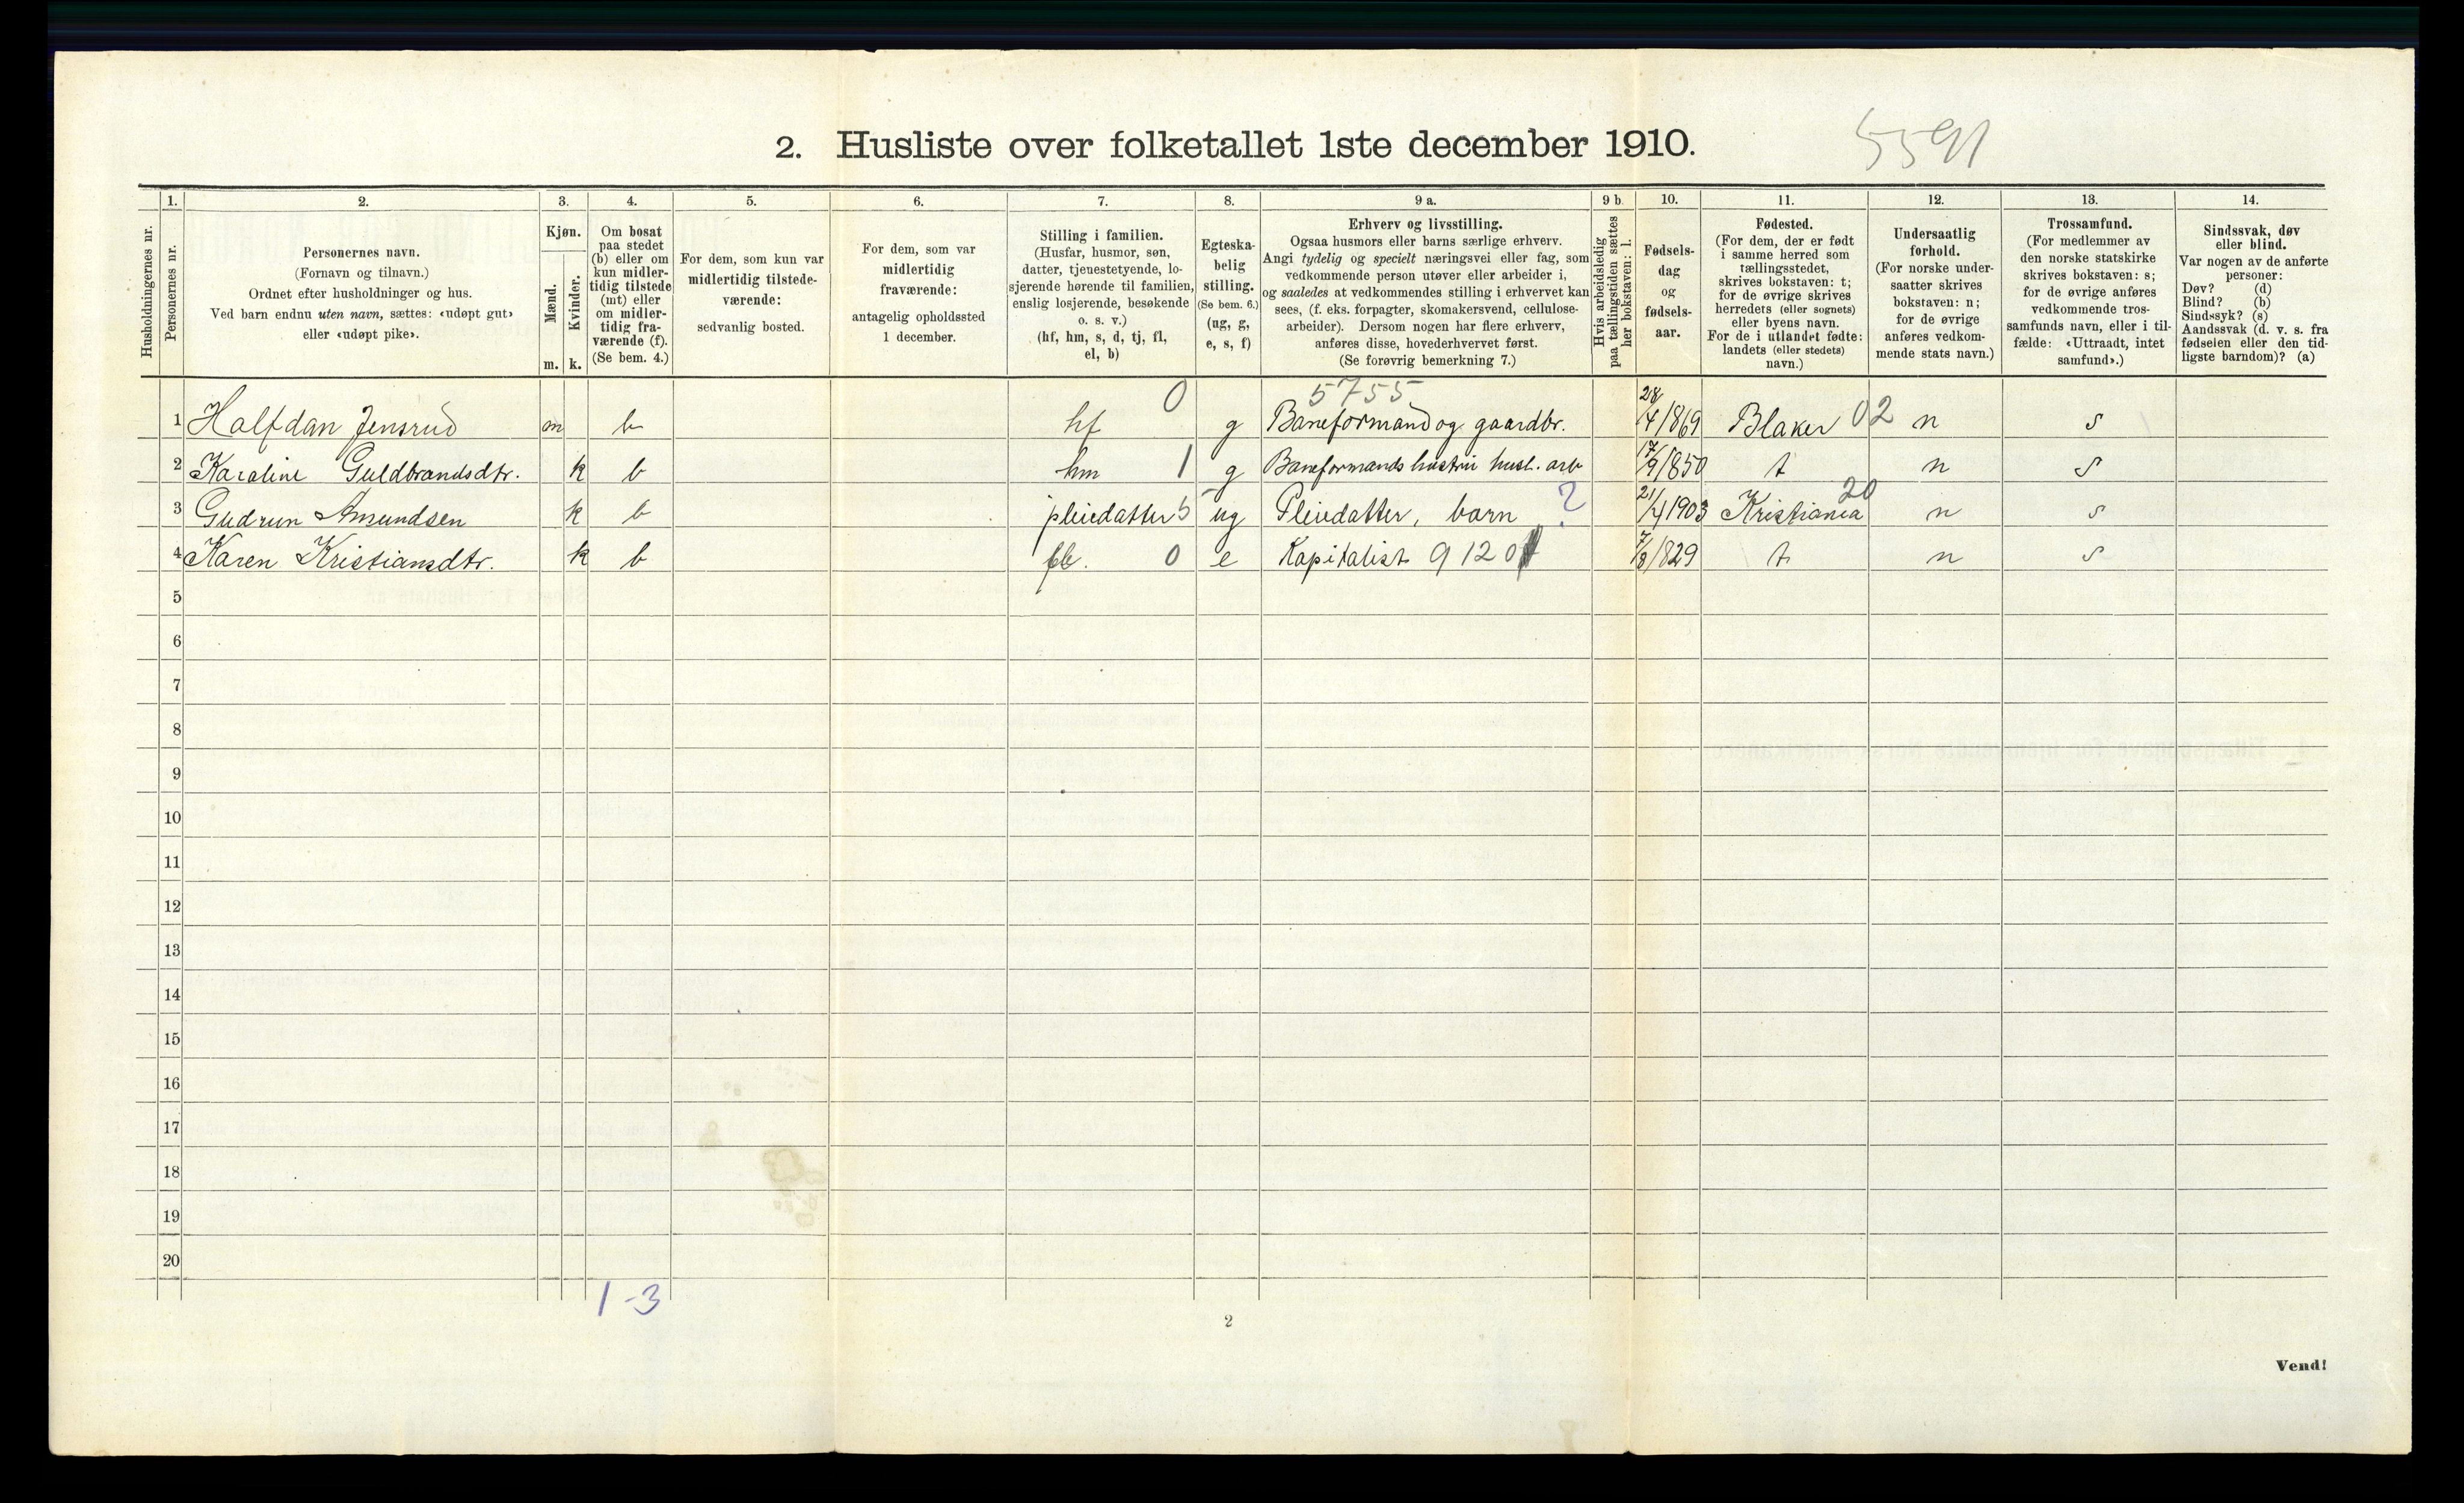 2. Husliste over folketallet 1ste december 1910.
5591
Husholdningernes nr.
1.
Personernes nr.
2.
Personernes navn.
(Fornavn og tilnavn.)
Ordnet efter husholdninger og hus.
Ved barn endnu uten navn, sættes: «udøpt gut»
eller «udøpt pike».
3.
Kjøn.
Mænd.
Kvinder.
m. k.
4.
Om bosat
paa stedet
(b) eller om
kun midler-
tidig tilstede
(mt) eller
om midler-
tidig fra-
værende (f).
(Se bem. 4.)
5.
For dem, som kun var
midlertidig tilstede-
værende:
sedvanlig bosted.
6.
For dem, som var
midlertidig
fraværende:
antagelig opholdssted
1 december.
7.
Stilling i familien.
(Husfar, husmor, søn,
datter, tjenestetyende, lo-
sjerende hørende til familien,
enslig losjerende, besøkende
o. s. v.)
(hf, hm, s, d, tj, fl,
el, b)
8.
Egteska-
belig
stilling.
(Se bem. 6.)
(ug, g,
e, s, f)
9 a.
Erhverv og livsstilling.
Ogsaa husmors eller barns særlige erhverv.
Angi tydelig og specielt næringsvei eller fag, som
vedkommende person utøver eller arbeider i,
og saaledes at vedkommendes stilling i erhvervet kan
sees, (f. eks. forpagter, skomakersvend, cellulose-
arbeider). Dersom nogen har flere erhverv,
anføres disse, hovederhvervet først.
(Se forøvrig bemerkning 7.)
9 b.
Hvis arbeidsledig
paa tællingstiden sættes
her bokstaven: l.
10.
Fødsels-
dag
og
fødsels-
aar.
11.
Fødested.
(For dem, der er født
i samme herred som
tællingsstedet,
skrives bokstaven: t;
for de øvrige skrives
herredets (eller sognets)
eller byens navn.
For de i utlandet fødte:
landets (eller stedets)
navn.)
12.
Undersaatlig
forhold.
(For norske under-
saatter skrives
bokstaven: n;
for de øvrige
anføres vedkom-
mende stats navn.)
13.
Trossamfund.
(For medlemmer av
den norske statskirke
skrives bokstaven: s;
for de øvrige anføres
vedkommende tros-
samfunds navn, eller i til-
fælde: «Uttraadt, intet
samfund».)
14.
Sindssvak, døv
eller blind.
Var nogen av de anførte
personer:
Døv? (d)
Blind? (b)
Sindssyk? (s)
Aandssvak (d. v. s. fra
fødselen eller den tid-
ligste barndom)? (a)
5755
1 Halfdan Jensrud m b hf 0 g Baneformand og gaardbr. 28/4 1869 Blaker 02 n s
2 Karoline Guldbrandsdtr. k b hm 1 g Baneformands hustru husl. arb 17/9 1850 t n s
3 Gudrun Amundsen k b pleiedatter 5 ug Pleiedatter, barn ? 21/4 1903 Kristiania 20 n s
4 Karen Kristiansdtr. k b fl. 0 e Kapitalist 9120 7/8 1829 t n s
5
6
7
8
9
10
11
12
13
14
15
16
17
18
19
20
1-3
2
Vend!